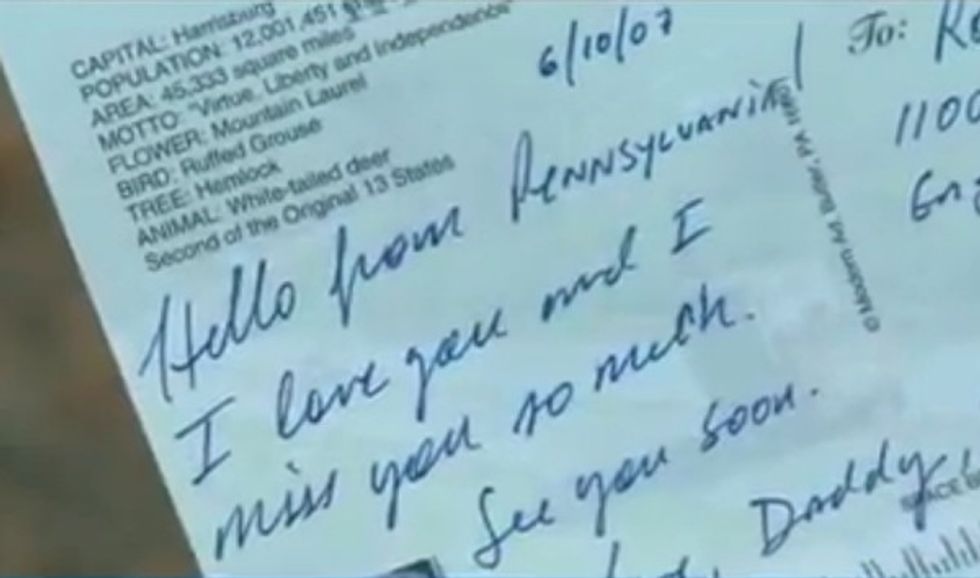 CAPITAL: Harrisburg
POPULATION: 12,001,451
AREA: 45,333 square miles
MOTTO: "Virtue, Liberty and Independence"
FLOWER: Mountain Laurel
BIRD: Ruffed Grouse
TREE: Hemlock
ANIMAL: White-tailed deer
Second of the Original 13 States
6/10/07
Hello from PENNSYLVANIA
I love you and I
miss you so much.
See you soon.
Daddy
To:
1100
© Modern Ad, Butler, PA